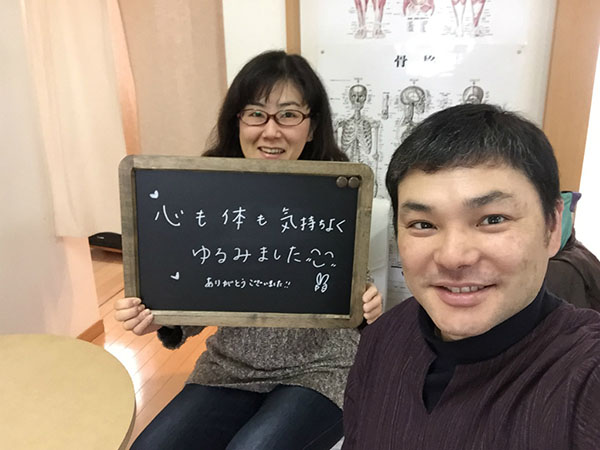 骨格
心も体も気持ちよく
ゆるみました
ありがとうございました!!